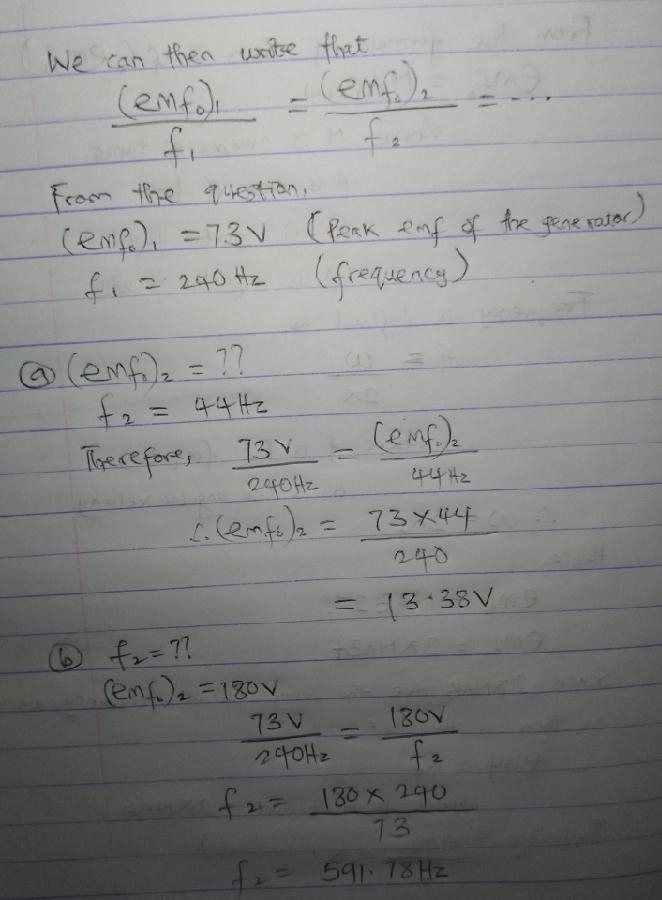 We can then write that
(emf₀)₁ / f₁ = (emf₀)₂ / f₂ = ...
From the question,
(emf₀)₁ = 73 V (Peak emf of the generator)
f₁ = 240 Hz (frequency)
(a) (emf₀)₂ = ??
f₂ = 44 Hz
Therefore, 73 V / 240 Hz = (emf₀)₂ / 44 Hz
∴ (emf₀)₂ = 73 × 44 / 240
= 13.38 V
(b) f₂ = ??
(emf₀)₂ = 180 V
73 V / 240 Hz = 180 V / f₂
f₂ = 180 × 240 / 73
f₂ = 591.78 Hz